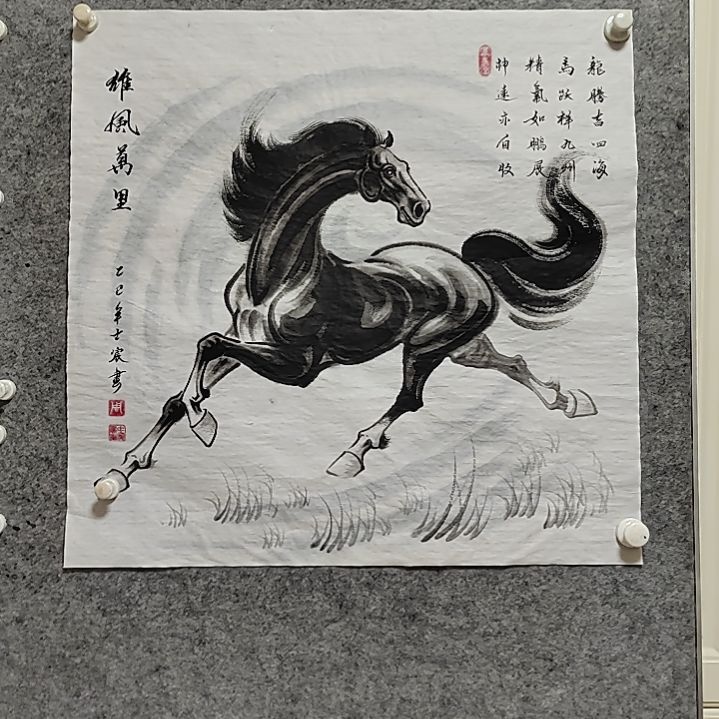 龍騰吉四海
馬躍祥九州
精氣如鵬展
神速亦自收
雄風萬里
乙巳年士宸畫